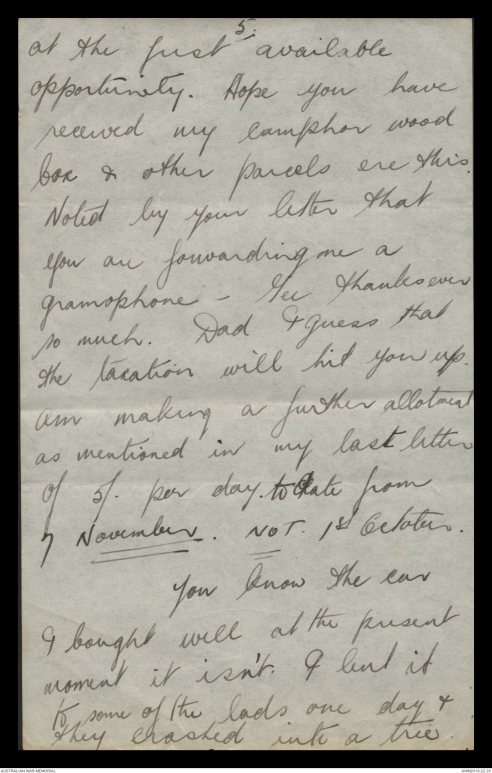 5.
at the first available
opportunity. Hope you have
received my camphor wood
box & other parcels ere this.
Noted by your letter that
you are forwarding me a
gramophone - Gee thanks ever
so much. Dad I guess that
the taxation will hit you up.
Am making a further allotment
as mentioned in my last letter
of 5/- per day. to date from
7 November. NOT. 1st October.
You know the car
I bought well at the present
moment it isn't. I lent it
to some of the lads one day &
they crashed into a tree.
AUSTRALIAN WAR MEMORIAL